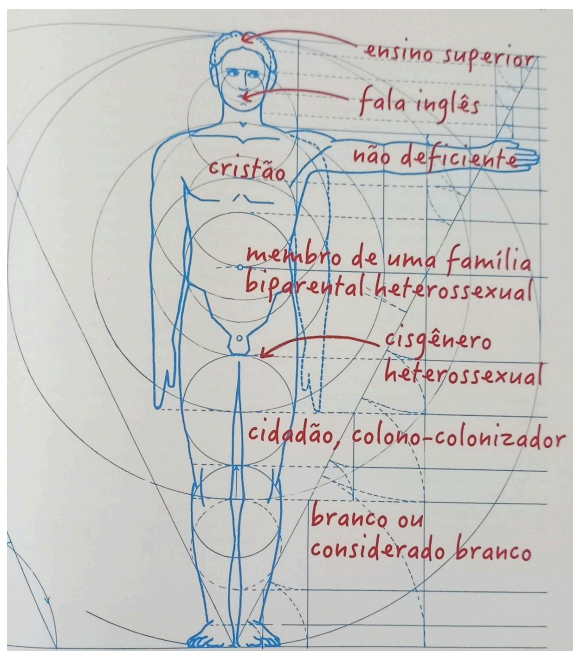 ensino superior
fala inglês
não deficiente
cristão
membro de uma família
biparental heterossexual
cisgênero
heterossexual
cidadão, colono-colonizador
branco ou
considerado branco